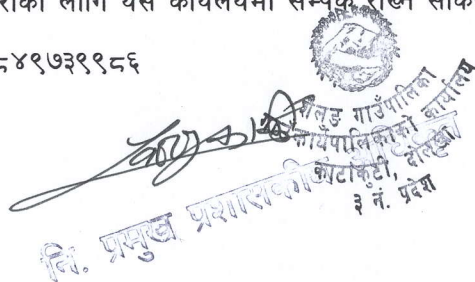 राको लागि यस कार्यलयमा सम्पर्क राख्न सकि
८४९७३९९८६
शैलुङ गाउँपालिका
गाउँ कार्यपालिकाको कार्यालय
काटाकुटी, दोलखा
३ नं. प्रदेश
नि. प्रमुख प्रशासकीय